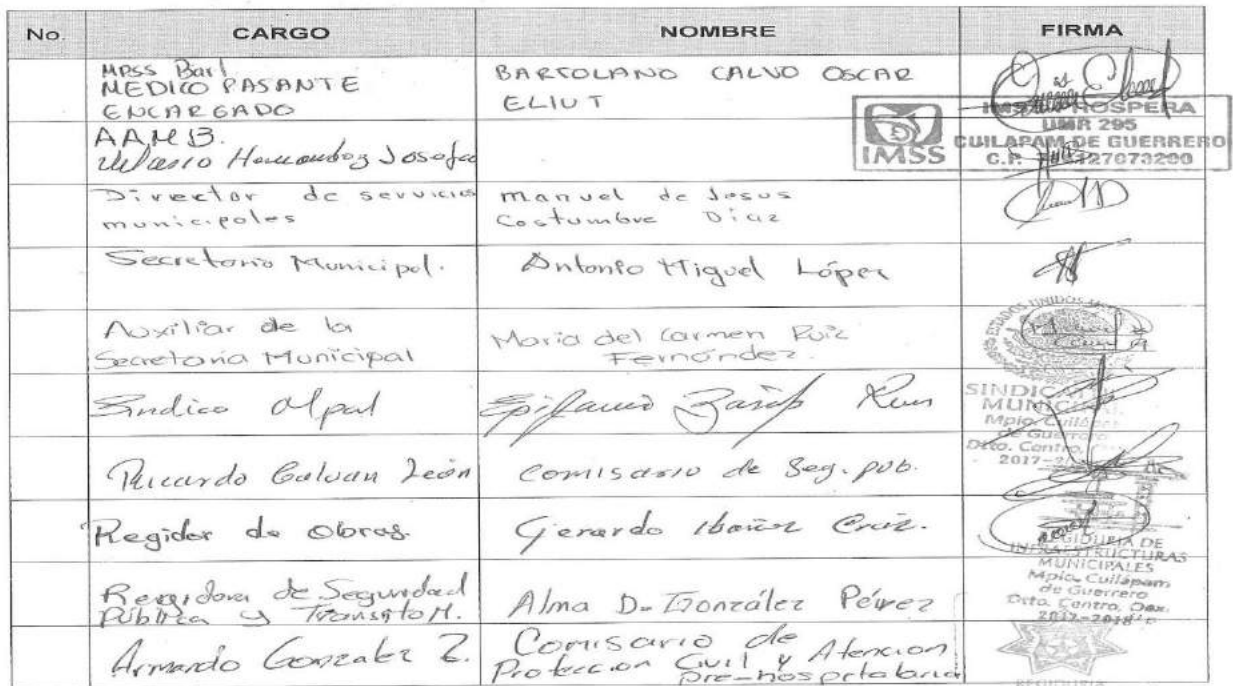 No. CARGO NOMBRE FIRMA
MPSS Bart
MEDICO PASANTE
ENCARGADO
BARTOLANO CALVO OSCAR
ELIUT
IMSS PROSPERA
UMR 295
CUILAPAM DE GUERRERO
IMSS
AAMB.
Velasco Hernandez Josefa
Director de servicios
municipales
Manuel de Jesus
Costumbre Diaz
Secretario Municipal.
Antonio Miguel López
Auxiliar de la
Secretaria Municipal
Maria del Carmen Ruiz
Fernández.
ESTADOS UNIDOS
Sindico Mpal
Epifanio
SINDICATURA
MUNICIPAL
Mpio. Cuilápam
de Guerrero
Dtto. Centro,
Ricardo Galvan León
Comisario de Seg. pub.
Regidor de Obras.
Gerardo Ibañez Cruz.
REGIDURIA DE
INFRAESTRUCTURAS
MUNICIPALES
Mpio. Cuilápam
de Guerrero
Dtto. Centro, Oax.
2017-2018
Regidora de Seguridad
Pública y Transito M.
Alma D. González Pérez
Armando Gonzalez Z.
Comisario de
Protección Civil y Atencion
pre-hospitalaria
REGIDURIA